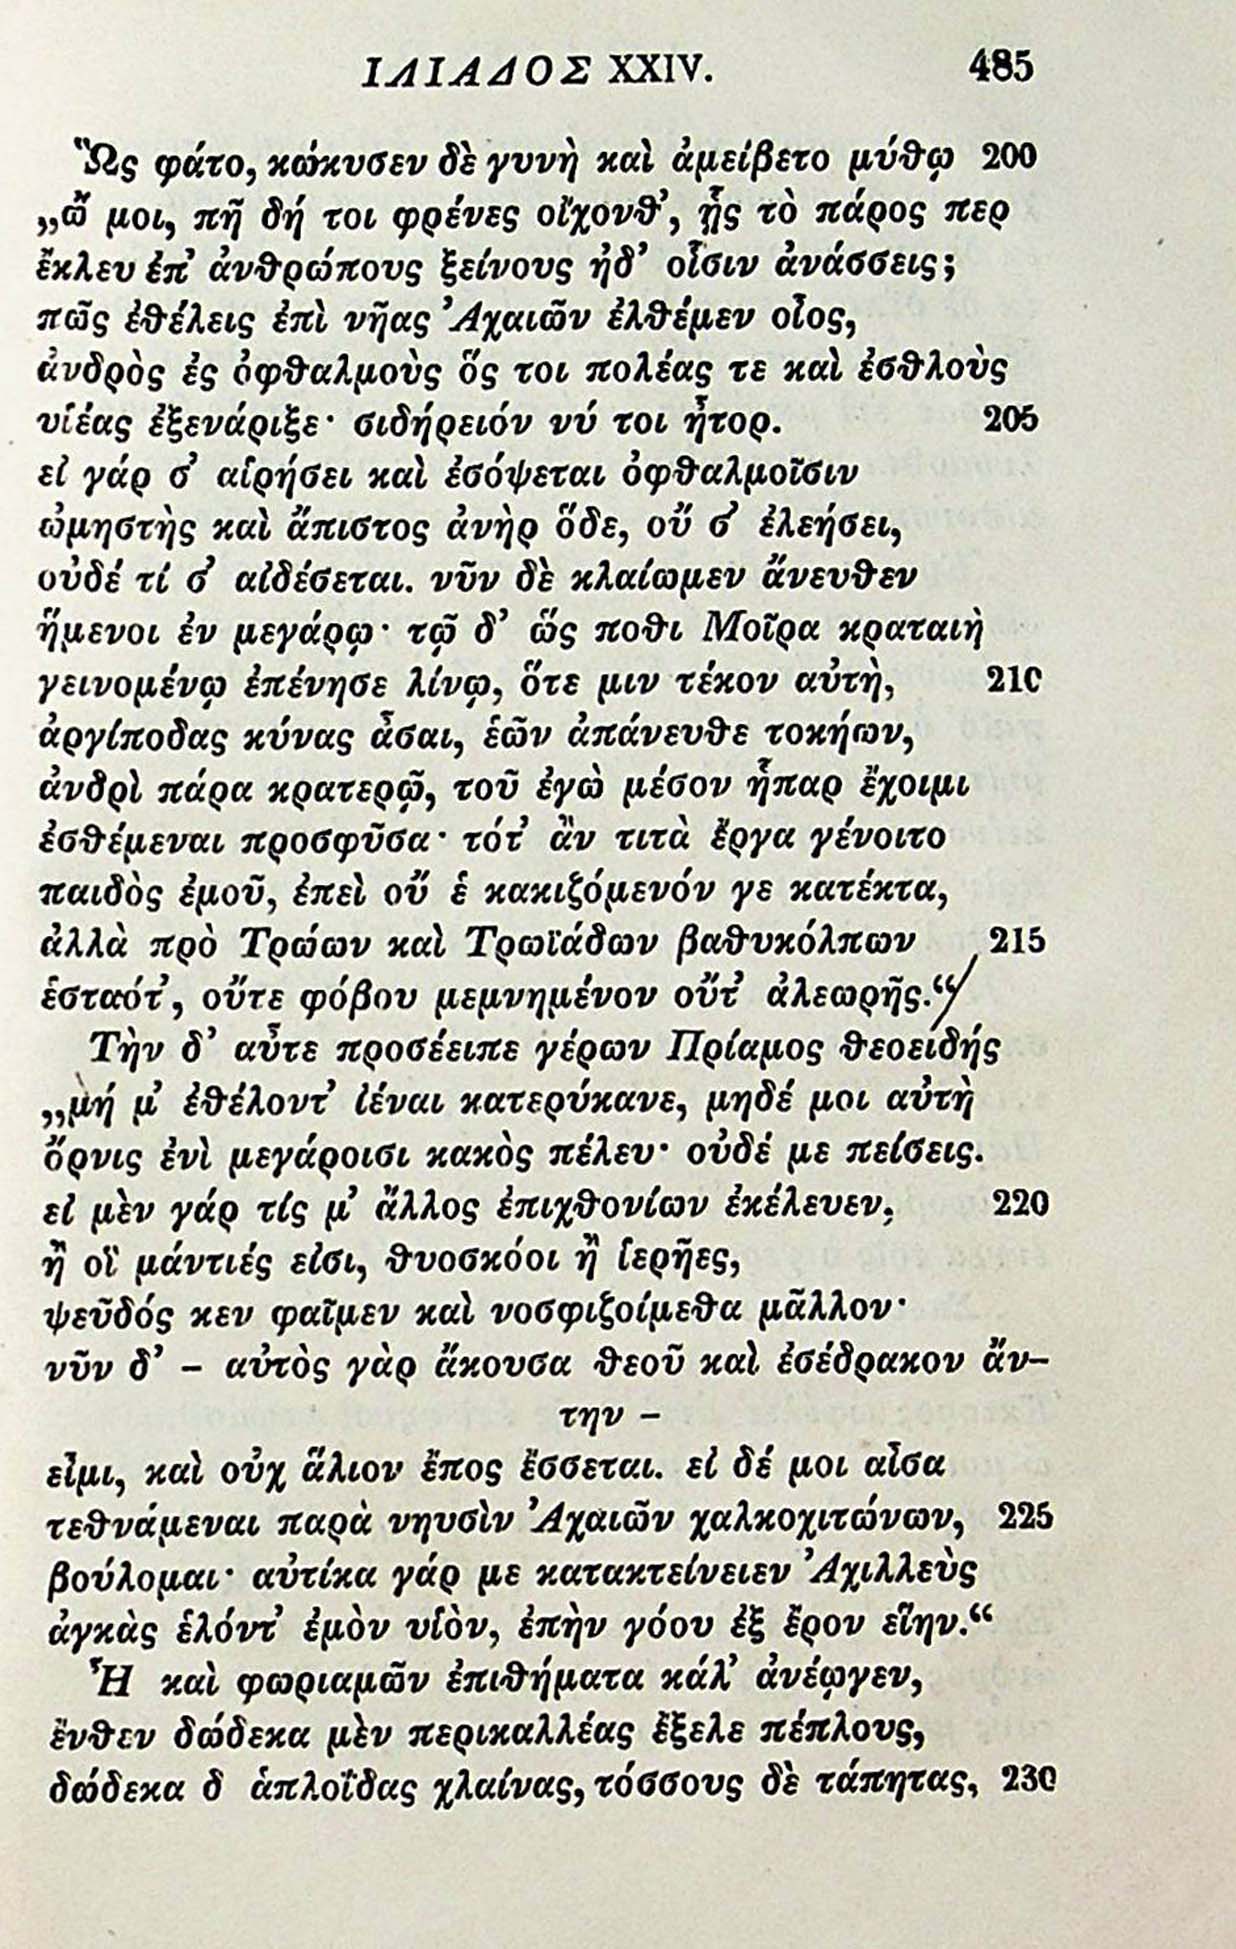 ΙΛΙΑΔΟΣ XXIV. 485
Ὣς φάτο, κώκυσεν δὲ γυνὴ καὶ ἀμείβετο μύθῳ 200
„ὤ μοι, πῇ δή τοι φρένες οἴχονθ’, ᾗς τὸ πάρος περ
ἔκλευ ἐπ’ ἀνθρώπους ξείνους ἠδ’ οἷσιν ἀνάσσεις;
πῶς ἐθέλεις ἐπὶ νῆας Ἀχαιῶν ἐλθέμεν οἶος,
ἀνδρὸς ἐς ὀφθαλμοὺς ὅς τοι πολέας τε καὶ ἐσθλοὺς
υἱέας ἐξενάριξε· σιδήρειόν νύ τοι ἦτορ. 205
εἰ γάρ σ’ αἱρήσει καὶ ἐσόψεται ὀφθαλμοῖσιν
ὠμηστὴς καὶ ἄπιστος ἀνὴρ ὅδε, οὔ σ’ ἐλεήσει,
οὐδέ τί σ’ αἰδέσεται. νῦν δὲ κλαίωμεν ἄνευθεν
ἥμενοι ἐν μεγάρῳ· τῷ δ’ ὥς ποθι Μοῖρα κραταιὴ
γεινομένῳ ἐπένησε λίνῳ, ὅτε μιν τέκον αὐτὴ, 210
ἀργίποδας κύνας ἆσαι, ἑῶν ἀπάνευθε τοκήων,
ἀνδρὶ πάρα κρατερῷ, τοῦ ἐγὼ μέσον ἧπαρ ἔχοιμι
ἐσθέμεναι προσφῦσα· τότ’ ἂν τιτὰ ἔργα γένοιτο
παιδὸς ἐμοῦ, ἐπεὶ οὔ ἑ κακιζόμενόν γε κατέκτα,
ἀλλὰ πρὸ Τρώων καὶ Τρωϊάδων βαθυκόλπων 215
ἑσταότ’, οὔτε φόβου μεμνημένον οὔτ’ ἀλεωρῆς.“
Τὴν δ’ αὖτε προσέειπε γέρων Πρίαμος θεοειδής
„μή μ’ ἐθέλοντ’ ἰέναι κατερύκανε, μηδέ μοι αὐτὴ
ὄρνις ἐνὶ μεγάροισι κακὸς πέλευ· οὐδέ με πείσεις.
εἰ μὲν γάρ τίς μ’ ἄλλος ἐπιχθονίων ἐκέλευεν, 220
ἢ οἳ μάντιές εἰσι, θυοσκόοι ἢ ἱερῆες,
ψεῦδός κεν φαῖμεν καὶ νοσφιζοίμεθα μᾶλλον·
νῦν δ’ – αὐτὸς γὰρ ἄκουσα θεοῦ καὶ ἐσέδρακον ἄν–
την –
εἶμι, καὶ οὐχ ἅλιον ἔπος ἔσσεται. εἰ δέ μοι αἶσα
τεθνάμεναι παρὰ νηυσὶν Ἀχαιῶν χαλκοχιτώνων, 225
βούλομαι· αὐτίκα γάρ με κατακτείνειεν Ἀχιλλεὺς
ἀγκὰς ἑλόντ’ ἐμὸν υἱὸν, ἐπὴν γόου ἐξ ἔρον εἵην.“
Ἦ καὶ φωριαμῶν ἐπιθήματα κάλ’ ἀνέῳγεν,
ἔνθεν δώδεκα μὲν περικαλλέας ἔξελε πέπλους,
δώδεκα δ ἁπλοΐδας χλαίνας, τόσσους δὲ τάπητας, 230